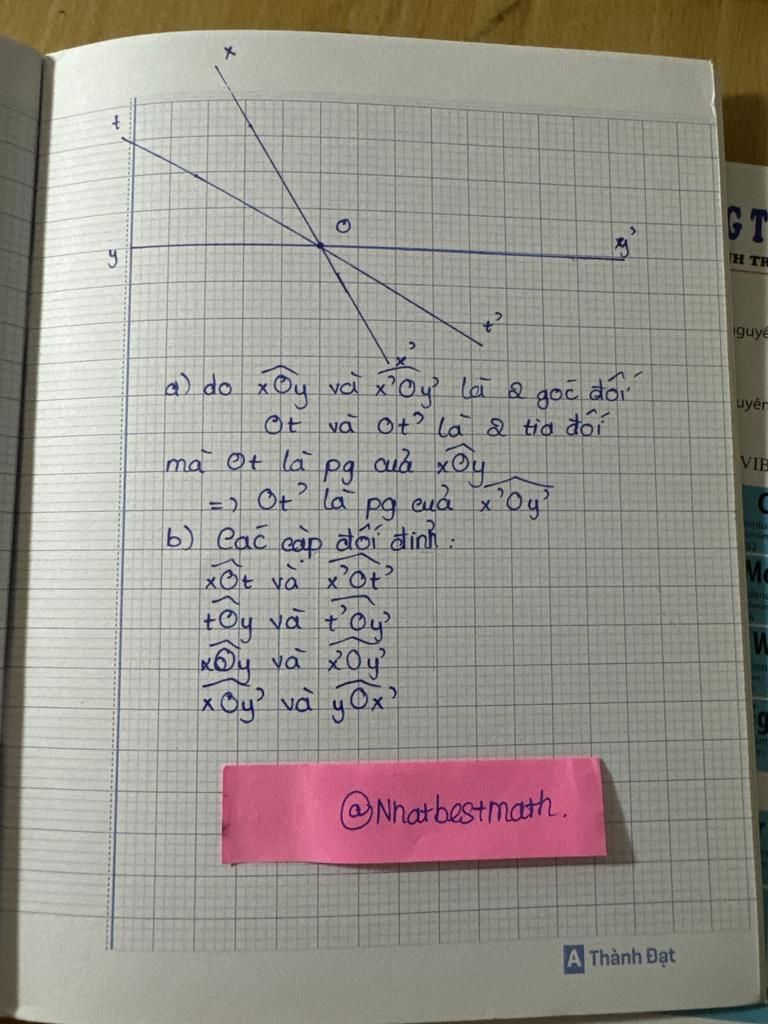 x
t
O
y
y'
t'
x'
a) do xOy và x'Oy' là 2 góc đối
Ot và Ot' là 2 tia đối
mà Ot là pg cuả xOy
=> Ot' là pg cuả x'Oy'
b) Các cặp đối đỉnh:
xOt và x'Ot'
tOy và t'Oy'
xOy và x'Oy'
xOy' và yOx'
@Nhatbestmath.
A Thành Đạt
G T
H TR
guyê
uyên
VIB